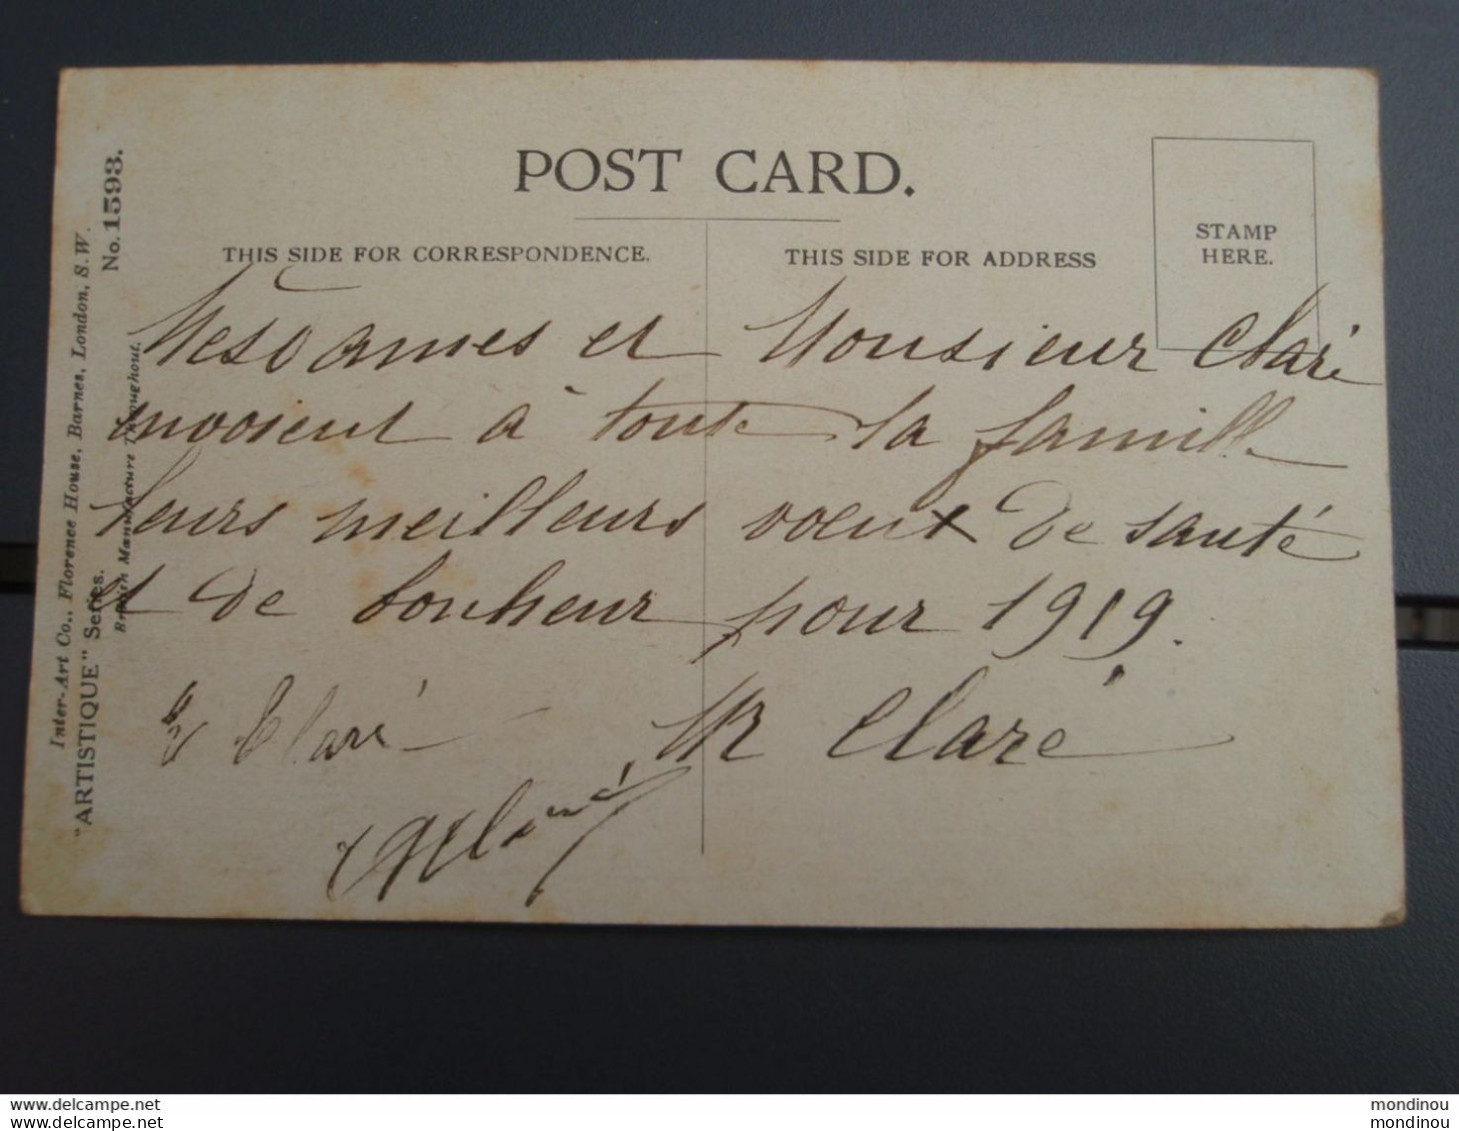 POST CARD.
THIS SIDE FOR CORRESPONDENCE.
THIS SIDE FOR ADDRESS
STAMP
HERE.
Mesdames et Monsieur Claré
envoient à toute la famille
leurs meilleurs vœux de santé
et de bonheur pour 1919.
Claré
M Claré
No. 1593.
Inter-Art Co., Florence House, Barnes, London, S.W.
"ARTISTIQUE" Series.
British Manufacture Throughout.
delcampe.net
mondinou
delcampe.net
mondinou